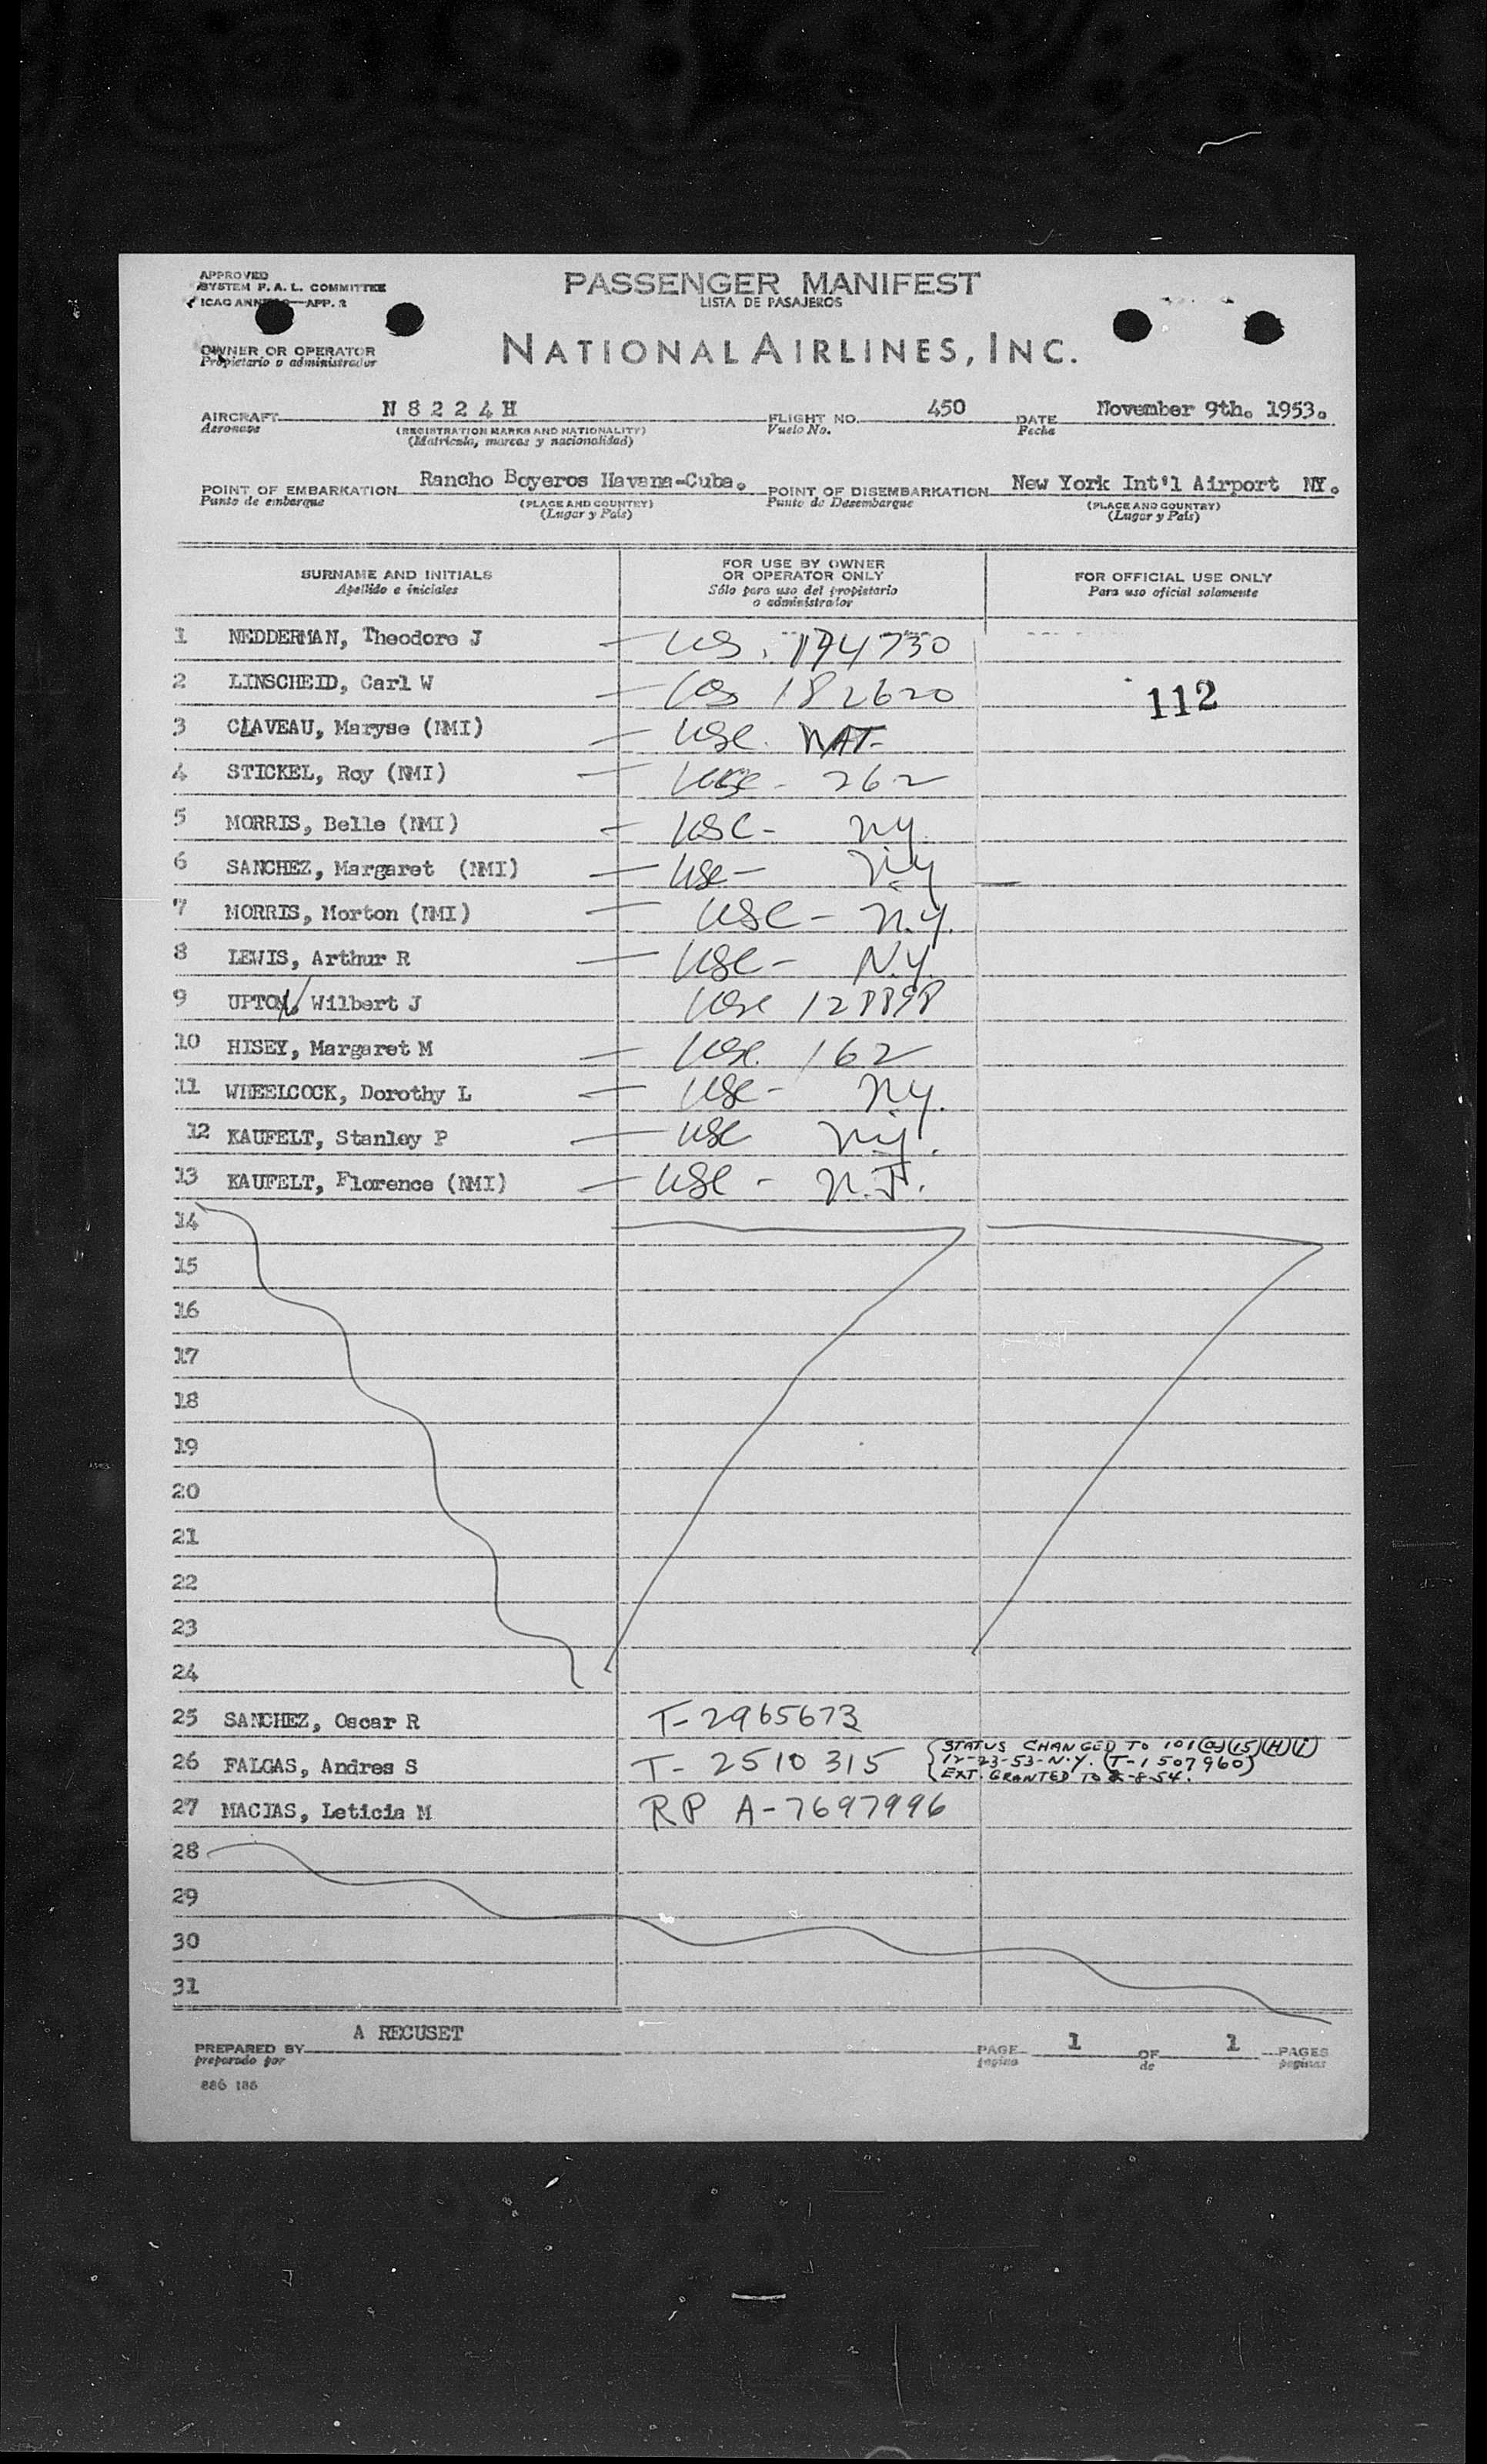 APPROVED
SYSTEM F. A. L. COMMITTEE
ICAO APP. 2
PASSENGER MANIFEST
LISTA DE PASAJEROS
OWNER OR OPERATOR
Propietario o administrador
NATIONAL AIRLINES, INC.
AIRCRAFT N 8 2 2 4 H FLIGHT NO. 450 DATE November 9th. 1953.
Aeronave (REGISTRATION MARKS AND NATIONALITY) Vuelo No. Fecha
(Matrícula, marcas y nacionalidad)
POINT OF EMBARKATION Rancho Boyeros Havana-Cuba. POINT OF DISEMBARKATION New York Int'l Airport NY.
Punto de embarque (PLACE AND COUNTRY) Punto de Desembarque (PLACE AND COUNTRY)
(Lugar y País) (Lugar y País)
SURNAME AND INITIALS
Apellido e iniciales
FOR USE BY OWNER
OR OPERATOR ONLY
Sólo para uso del propietario
o administrador
FOR OFFICIAL USE ONLY
Para uso oficial solamente
1 NEDDERMAN, Theodore J — US. 194730
2 LINSCHEID, Carl W — US 182620 112
3 CLAVEAU, Maryse (NMI) — USC. NAT-
4 STICKEL, Roy (NMI) — USC - 262
5 MORRIS, Belle (NMI) — USC - NY.
6 SANCHEZ, Margaret (NMI) — USC - N.Y
7 MORRIS, Morton (NMI) — USC - N.Y.
8 LEWIS, Arthur R — USC - N.Y.
9 UPTON, Wilbert J USC 128898
10 HISEY, Margaret M — USC. 162
11 WHEELCOCK, Dorothy L — USC - N.Y.
12 KAUFELT, Stanley P — USC
13 KAUFELT, Florence (NMI) — USC - N.J.
14
15
16
17
18
19
20
21
22
23
24
25 SANCHEZ, Oscar R T-2965673
26 FALGAS, Andres S T-2510315
STATUS CHANGED TO 101(a)(15)(H)(i)
12-23-53-N.Y. (T-1507960)
EXT. GRANTED TO
27 MACIAS, Leticia M RP A-7697996
28
29
30
31
PREPARED BY A RECUSET PAGE 1 OF 1 PAGES
preparado por página de páginas
886 186